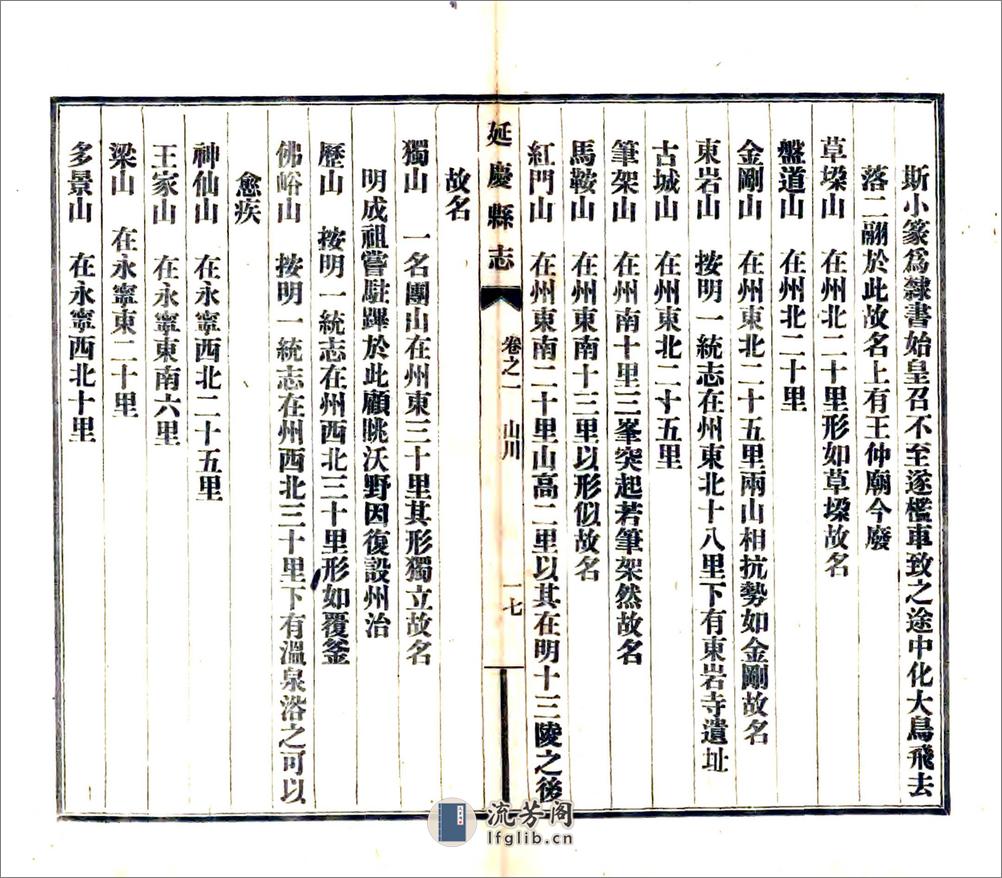 斯小篆爲隸書始皇召不至遂檻車致之途中化大鳥飛去
落二翮於此故名上有王仲廟今廢
草垜山　在州北二十里形如草垜故名
盤道山　在州北二十里
金剛山　在州東北二十五里兩山相抗勢如金剛故名
東岩山　按明一統志在州東北十八里下有東岩寺遺址
古城山　在州東北二十五里
筆架山　在州南十里三峯突起若筆架然故名
馬鞍山　在州東南十三里以形似故名
紅門山　在州東南二十里山高二里以其在明十三陵之後
延慶縣志　卷之一　山川　一七
故名
獨山　一名團山在州東三十里其形獨立故名
明成祖嘗駐蹕於此顧眺沃野因復設州治
歷山　按明一統志在州西北三十里形如覆釜
佛峪山　按明一統志在州西北三十里下有溫泉浴之可以
愈疾
神仙山　在永寧西北二十五里
王家山　在永寧東南六里
梁山　在永寧東二十里
多景山　在永寧西北十里
流芳阁
lfglib.cn